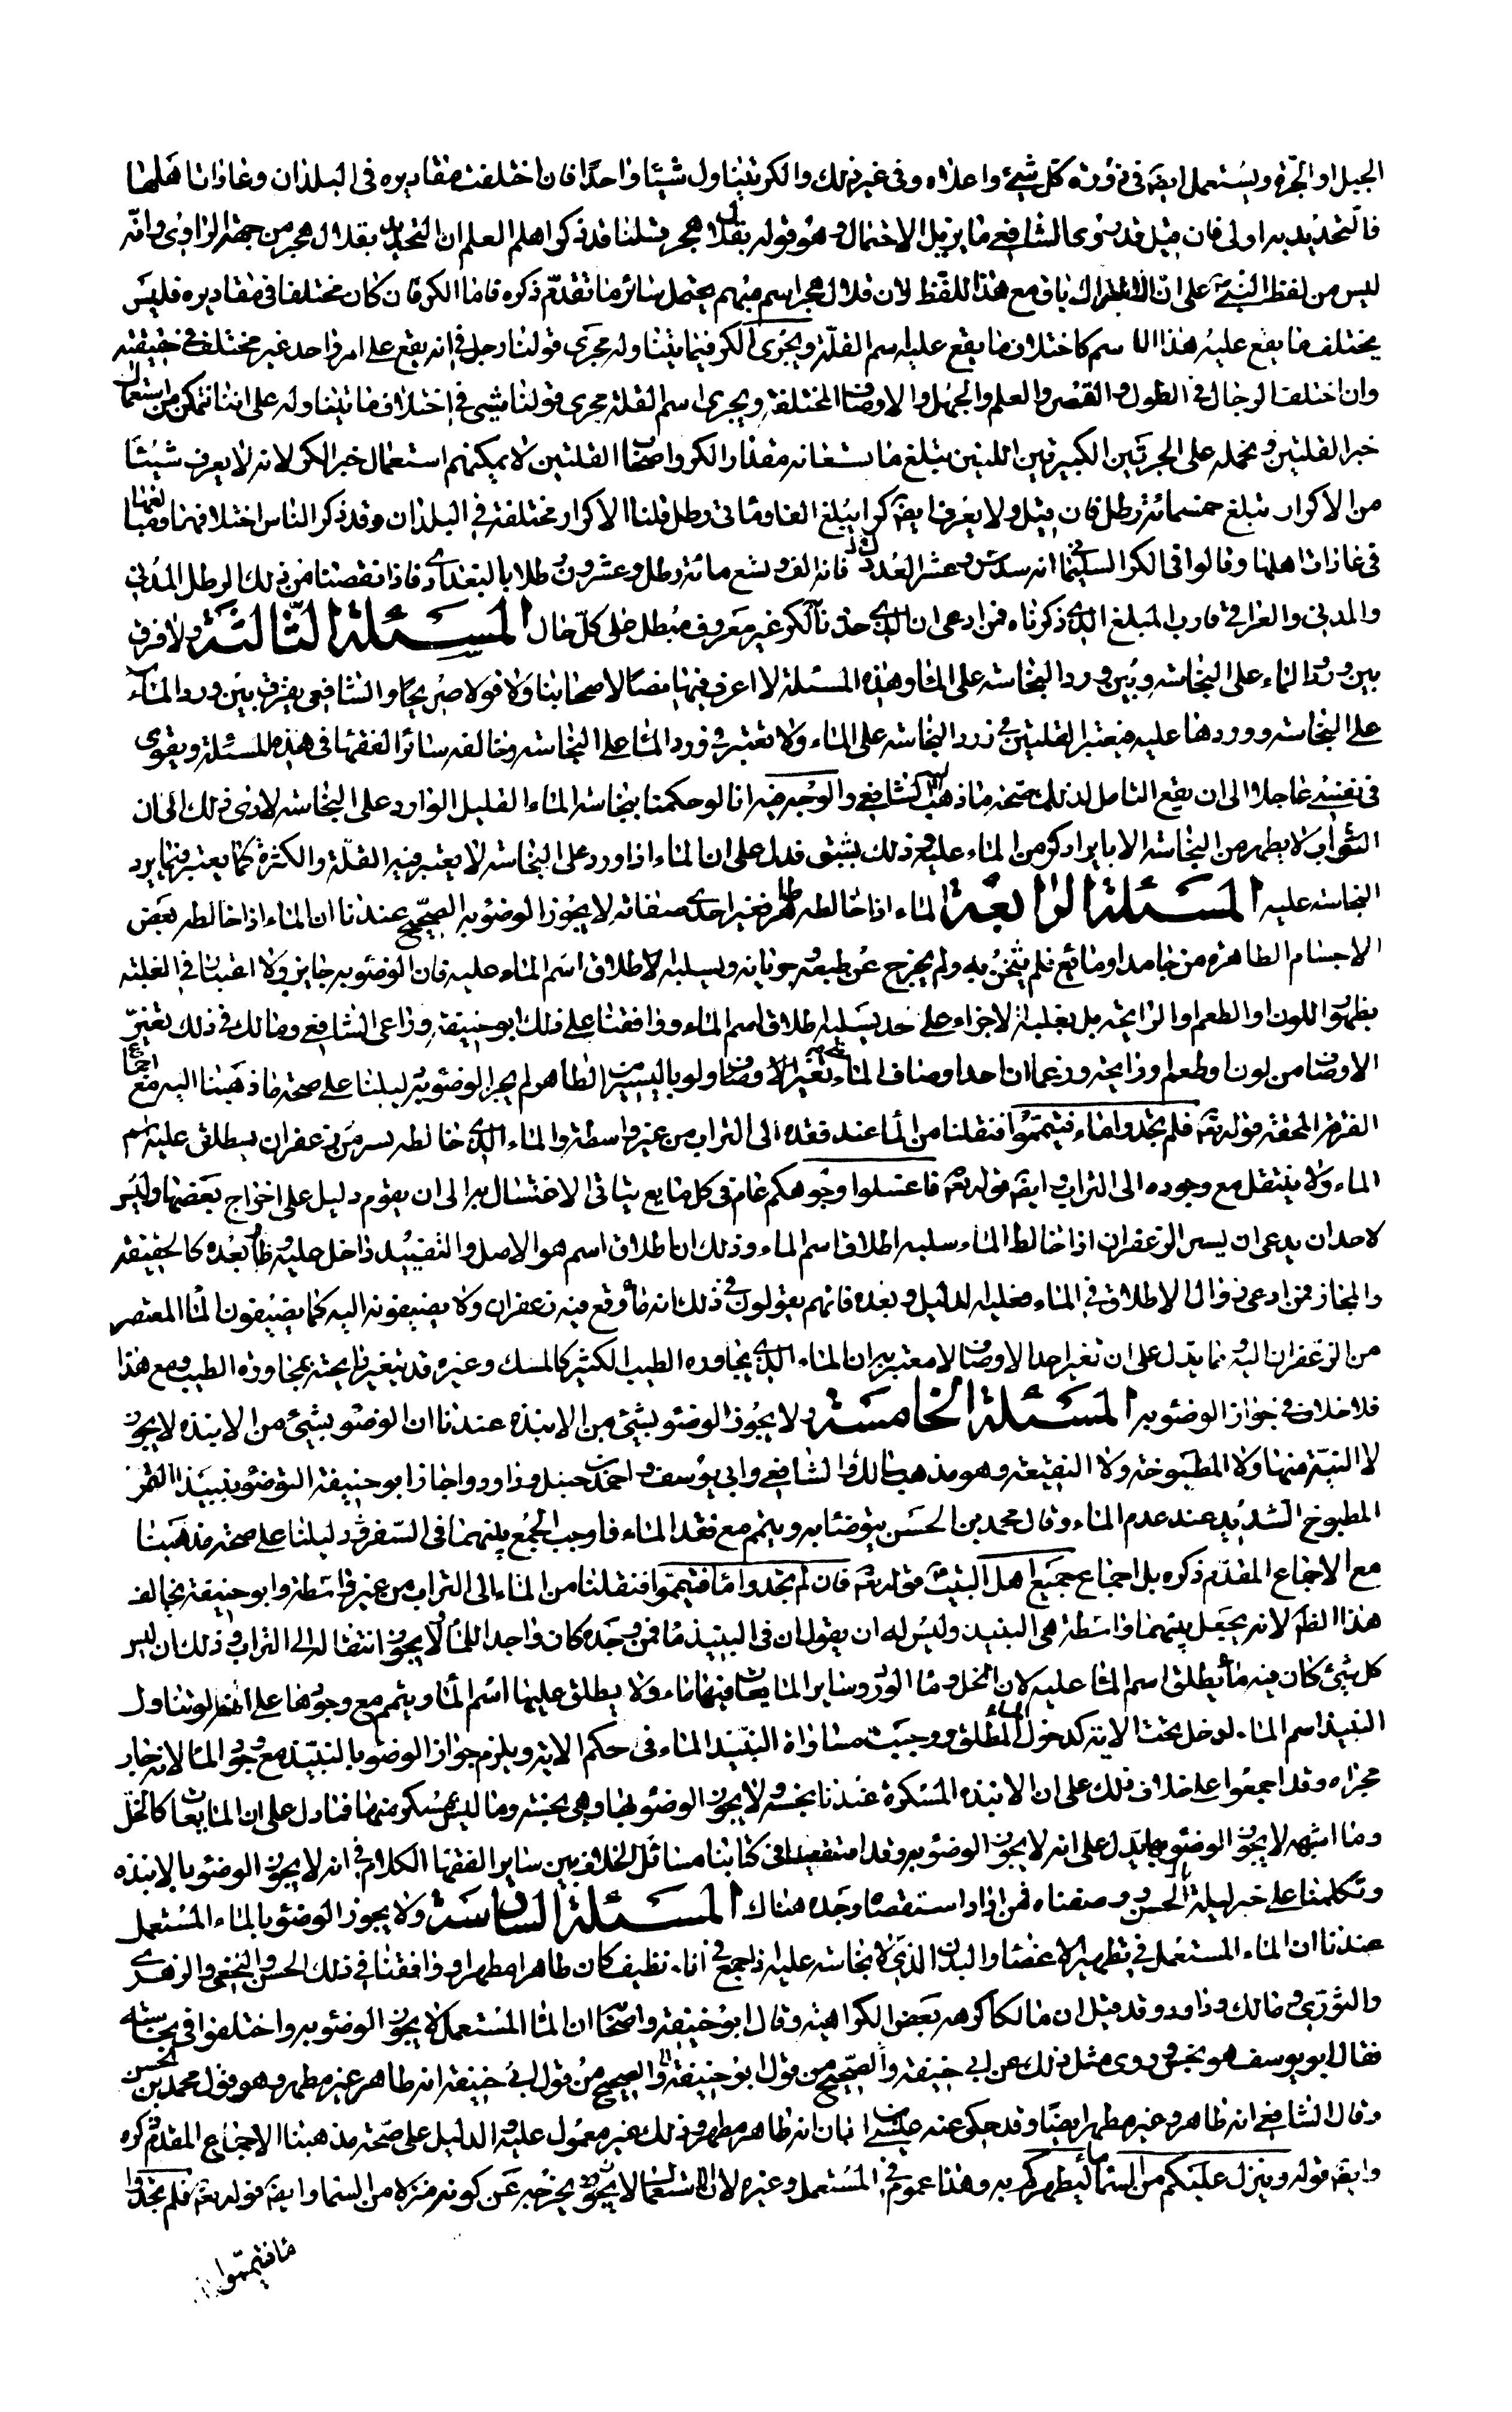 الجبل او الجرة ويستعمل ايضه فى ذروة كل شيئ واعلاه وفى غير ذلك والكر يتناول شيئا واحدا فان اختلفت مقاديره فى البلدان وعادات اهلها
فالتحديد به اولى فان قيل قد روى الشافعي ما يزيل الاحتمال وهو قوله بقلال هجر قلنا قد ذكر اهل العلم ان التحديد بقلال هجر من جهة الراوى وانه
ليس من لفظ النبي على ان الاشتراك باق مع هذا اللفظ لان قلال هجر اسم مبهم يحتمل سائر ما تقدم ذكره فاما الكر فان كان مختلفا فى مقاديره فليس
يختلف ما يقع عليه هذا الاسم كاختلاف ما يقع عليه اسم القلة ويجرى الكر فيما يتناوله مجرى قولنا رجل فى انه يقع على امر واحد غير مختلف فى حقيقته
وان اختلف الرجال فى الطول والقصر والعلم والجهل والاوصاف المختلفة ويجرى اسم القلة مجرى قولنا شيئ فى اختلاف ما يتناوله على اننا نتمكن من استعمال
خبر القلتين ونحمله على الجرتين الكبيرتين اللتين تبلغ ما تسعانه مقدار الكر واصحاب القلتين لا يمكنهم استعمال خبر الكر لانه لا يعرف شيئا
من الاكرار تبلغ خمسمائة رطل فان قيل ولا يعرف ايضه كرا يبلغ الفا ومأتى رطل قلنا الاكرار مختلفة فى البلدان وقد ذكر الناس اختلافها ومبالغها
فى عادات اهلها وقالوا فى الكر السليمانى انه سدس وعشر العدل فانه الف وتسع مائة رطل وعشرون رطلا بالبغدادى فاذا نقصنا من ذلك الرطل المدنى
والمدنى والعراقى قارب المبلغ الذى ذكرناه فمن ادعى ان الذى حددنا الكر غير معروف مبطل على كل حال المسئلة الثالثة ولا فرق
بين ورود الماء على النجاسة وبين ورود النجاسة على الماء وهذه المسئلة لا اعرف فيها نصا لاصحابنا ولا قولا صريحا والشافعى يفرق بين ورود الماء
على النجاسة وورودها عليه فيعتبر القلتين فى ورود النجاسة على الماء ولا يعتبر فى ورود الماء على النجاسة وخالفه سائر الفقهاء فى هذه المسئلة ويقوى
فى نفسى عاجلا الى ان يقع التامل لذلك صحة ما ذهب اليه الشافعي والوجه فيه انا لو حكمنا بنجاسة الماء القليل الوارد على النجاسة لادى ذلك الى ان
الثواب لا يطهر من النجاسة الا بايراد كر من الماء عليه وذلك يشق فدل على ان الماء اذا ورد على النجاسة لا يعتبر فيه القلة والكثرة كما يعتبر فيما يرد
النجاسة عليه المسئلة الرابعة الماء اذا خالطه طاهر فغير احدى صفاته لا يجوز الوضوء به الصحيح عندنا ان الماء اذا خالطه بعض
الاجسام الطاهرة من جامد او مائع فلم يثخن به ولم يخرج عن طبعه وجريانه ويسلبه الاطلاق اسم الماء عليه فان الوضوء به جايز ولا اعتبار فى الغلبة
بظهور اللون او الطعم او الرايحة بل بغلبة الاجزاء على حد يسلبه اطلاق اسم الماء ووافقنا على ذلك ابو حنيفة وراعى الشافعي ومالك فى ذلك تغير
الاوصاف من لون او طعم ورايحة وزعما ان احد اوصاف الماء تغير الاوصاف ولو باليسير من الطاهر لم يجز الوضوء به دليلنا على صحة ما ذهبنا اليه مع اجماع
الفرقة المحقة قوله تعه فلم تجدوا ماء فتيمموا فنقلنا من الماء عند فقده الى التراب من غير واسطة والماء الذى خالطه يسير من زعفران يطلق عليه اسم
الماء ولا ينتقل مع وجوده الى التراب وايضه قوله تعه فاغسلوا وجوهكم عام فى كل مايع يتاتى الاغتسال به الى ان يقوم دليل على اخراج بعضها وليس
لاحد ان يدعى ان يسير الزعفران اذا خالط الماء سلبه اطلاق اسم الماء وذلك ان اطلاق اسم هو الاصل والتقييد داخل عليه وطار بعده كالحقيقة
والمجاز فمن ادعى زوال الاطلاق فى الماء فعليه الدليل وبعده فانهم يقولون فى ذلك انه ماء وقع فيه زعفران ولا يضيفونه اليه كما يضيفون الماء المعتصر
من الزعفران اليه ومما يدل على ان تغير احد الاوصاف لا معتبر به ان الماء الذى يجاوره الطيب الكثير كالمسك وغيره قد يتغير رايحته بمجاورة الطيب ومع هذا
فلا خلاف فى جواز الوضوء به المسئلة الخامسة ولا يجوز الوضوء بشيئ من الانبذة عندنا ان الوضوء بشيئ من الانبذة لا يجوز
لا النية منها ولا المطبوخة ولا النقيعة وهو مذهب مالك والشافعي وابى يوسف واحمد بن حنبل وداود واجاز ابو حنيفة التوضؤ بنبيذ التمر
المطبوخ الشديد عند عدم الماء وقال محمد بن الحسن يتوضأ به ويتيمم مع فقد الماء فاوجب الجمع بينهما فى السفر دليلنا على صحة مذهبنا
مع الاجماع المقدم ذكره بل اجماع جميع اهل البيت قوله تعه فان لم تجدوا ماء فتيمموا فنقلنا من الماء الى التراب من غير واسطة وابو حنيفة يخالف
هذا الظ لانه يجعل بينهما واسطة هى النبيذ وليس له ان يقول ان فى النبيذ ماء فمن وجده كان واجدا للماء ولا يجوز انتقاله الى التراب وذلك ان ليس
كل شيئ كان فيه ماء يطلق اسم الماء عليه لان الخل وماء الورد وساير المايعات فيها ماء ولا يطلق عليها اسم الماء ويتيمم مع وجودها على انه لو تناول
النبيذ اسم الماء لدخل تحت الاية كدخول الماء المطلق ووجبت مساواة النبيذ الماء فى حكم الاية ويلزم جواز الوضوء بالنبيذ مع وجود الماء لانه جار
مجراه وقد اجمعوا على خلاف ذلك على ان الانبذة المسكرة عندنا نجسة ولا يجوز الوضوء بها وهى نجسة وما ليس بمسكر منها فما دل على ان المايعات كالخل
وما اشبهه لا يجوز الوضوء بها يدل على انه لا يجوز الوضوء به وقد استقصينا فى كتابنا مسائل الخلاف بين ساير الفقهاء الكلام فى انه لا يجوز الوضوء بالانبذة
وتكلمنا على خبر ليلة الجن ووصفناه فمن اراد استقصاه وجده هناك المسئلة السادسة ولا يجوز الوضوء بالماء المستعمل
عندنا ان الماء المستعمل فى تطهير الاعضاء والبدن الذى لا نجاسة عليه اذا جمع فى اناء نظيف كان طاهرا مطهرا ووافقنا فى ذلك الحسن والنخعى والزهرى
والثورى ومالك وداود وقد قيل ان مالكا كره بعض الكراهية وقال ابو حنيفة واصحابه ان الماء المستعمل لا يجوز الوضوء به واختلفوا فى نجاسته
فقال ابو يوسف هو نجس وروى مثل ذلك عن ابى حنيفة والصحيح من قول ابو حنيفة والصحيح من قول ابى حنيفة انه طاهر غير مطهر وهو قول محمد بن الحسن
وقال الشافعي انه طاهر وغير مطهر ايضا وقد حكى عنه عيسى بن ابان انه طاهر مطهر وذلك غير معمول عليه والدليل على صحة مذهبنا الاجماع المقدم ذكره
وايضه قوله وينزل عليكم من السماء ماء ليطهركم به وهذا عموم فى المستعمل وغيره لان الاستعمال لا يجوز يخرجه عن كونه منزلا من السماء وايضه قوله تعه فلم تجدوا
ماء فتيمموا